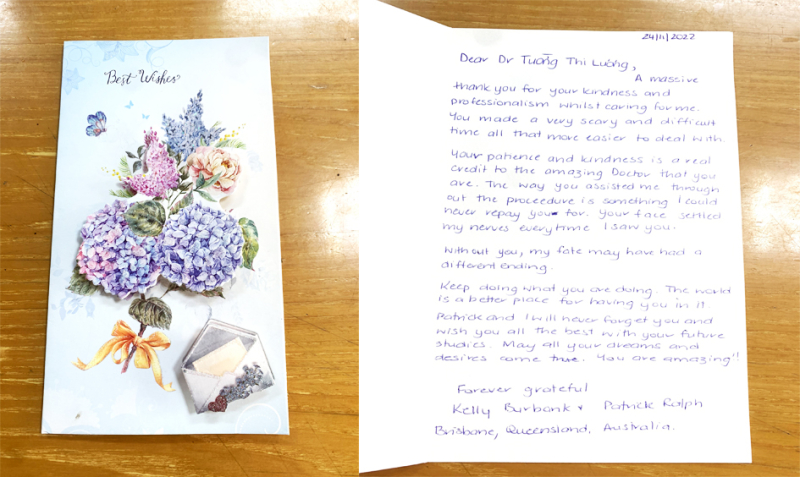 Best Wishes
24/11/2022
Dear Dr Tuờng Thi Luờng,
A massive
thank you for your kindness and
professionalism whilst caring for me.
You made a very scary and difficult
time all that more easier to deal with.
Your patience and kindness is a real
credit to the amazing Doctor that you
are. The way you assisted me through
out the proceedure is something I could
never repay you for. Your face settled
my nerves everytime I saw you.
Without you, my fate may have had a
different ending.
Keep doing what you are doing. The world
is a better place for having you in it.
Patrick and I will never forget you and
wish you all the best with your future
studies. May all your dreams and
desires come true. You are amazing!!
Forever grateful
Kelly Burbank & Patrick Ralph
Brisbane, Queensland, Australia.